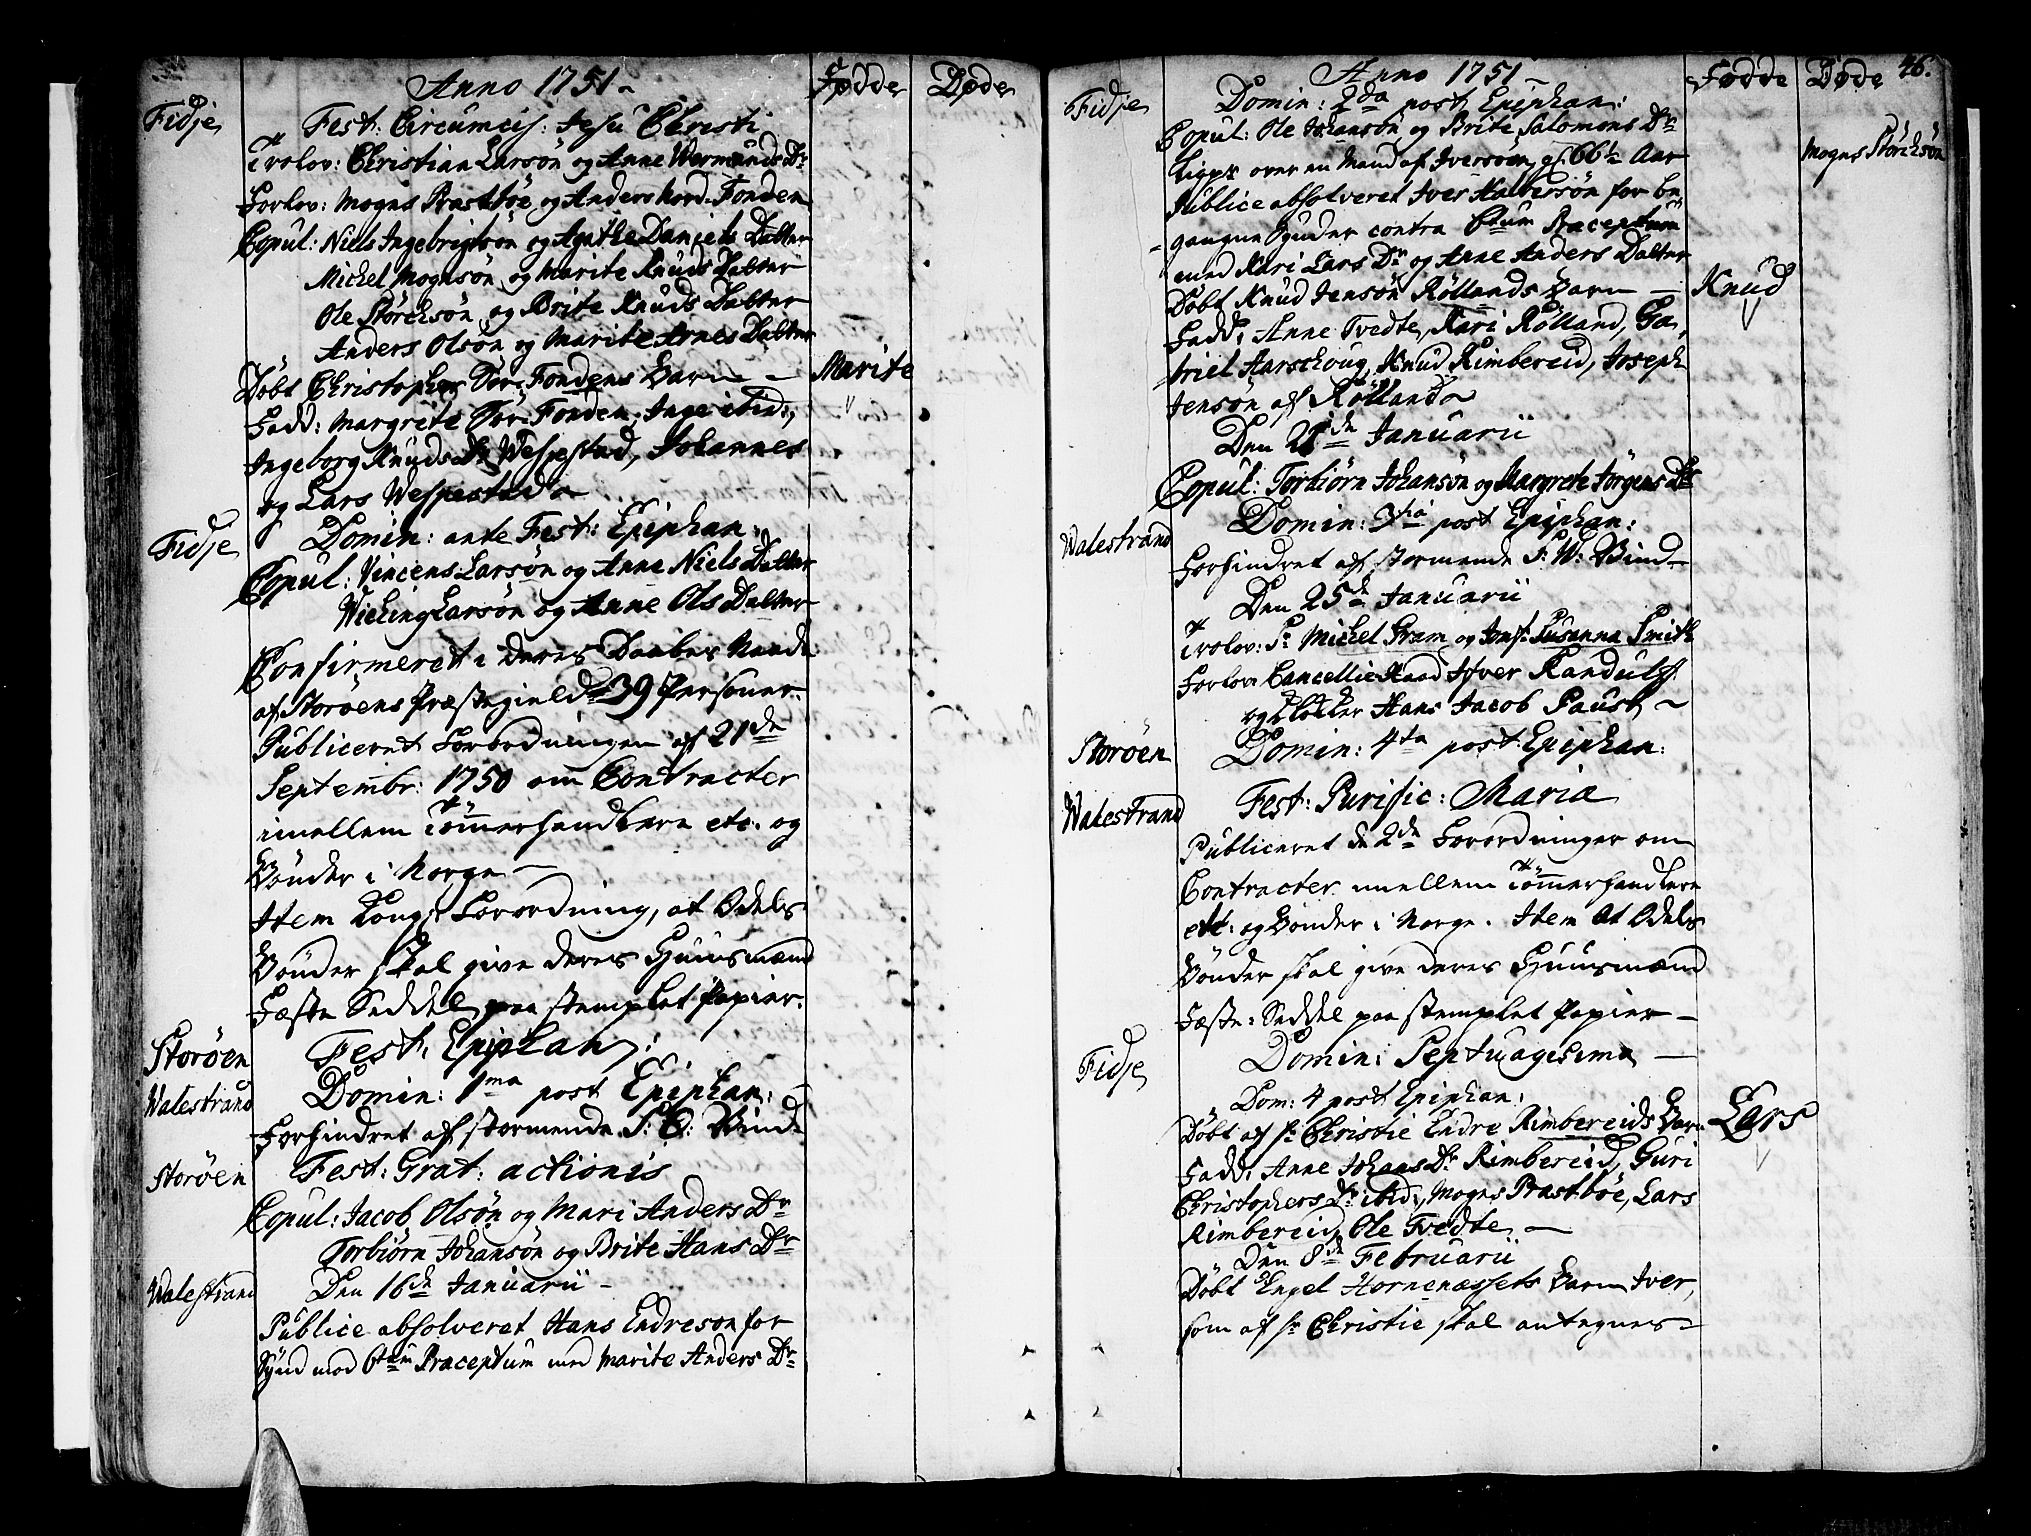 Anno 1751
Fødde
Døde
Fidje
Fest: Circumcis: Jesu Christi
Trolov: Christian Larsøn og Anne Wermunds Dr
Forlov: Mogns Præstbøe og Anders Nord-Fonden
Copul: Niels Ingebrigtsøn og Agathe Daniels Datter
Michel Mognsøn og Marite Knuds Datter
Ole Störchsön og Brite Knuds Datter
Anders Olsøn og Marite Arnes Datter
Döbt Christopher Sør-Fondens Barn
Marite
Fadd: Margrete Sør-Fonden, Inge ibid:,
Ingeborg Knuds Dr Wespestad, Johannes
og Lars Wespestad
Fidje
Domin: ante Fest: Epiphan:
Copul: Vincens Larsøn og Anne Niels Datter
Wiching Larsøn og Anne Ols Datter
Confirmeret i deres Daabes Naade
af Storøens Præstegield 39 Personer
Publiceret Forordningen af 21de
Septembr: 1750 om Contracter
imellem Tömmerhandlere etc. og
Bönder i Norge
Item Kong: Forordning, at Odels
Bönder skal give deres Huusmænd
Fæste Seddel paa stemplet Papier.
Storøen
Fest: Epiphan:
Walestrand
Domin: 1ma post Epiphan:
Forhindret af stormende S: O: Vind
Storøen
Fest: Grat: actionis
Copul: Jacob Olsøn og Mari Anders Dr
Torbiørn Johansøn og Brite Hans Dr
Walestrand
Den 16de Januarii
Publice absolveret Hans Endresøn for
Synd mod 6tum Præceptum med Marite Anders Dr
46.
Anno 1751
Fødde
Døde
Fidje
Domin: 2da post Epiphan:
Copul: Ole Johansøn og Brite Salomons Dr
Ligpr over en Mand af Iversöen, af 66½ Aar
Mogns Störchsön
Publice absolveret Iver Halversøn for be
gangne Synder contra 6tum Præceptum
med Kari Lars Dr og Anne Anders Datter
Döbt Knud Jensön Röllands Barn
Knud
Fadd: Anne Tvedte, Kari Rölland, Ga,
briel Aarschoug, Knud Rimbereid, Joseph
Jensön af Rölland
Den 21de Januarii
Copul: Torbiörn Johansön og Margrete Jörgens Dr
Walestrand
Domin: 3tia post Epiphan:
Forhindret af stormende S: W: Vind
Den 25de Januarii
Trolov: Sr Michel Gram og Jomfr: Susanna Smith
Forlov: Cancellie Raad Iffver Randulff
og Klokker Hans Jacob Paust
Storöen
Domin: 4ta post Epiphan:
Walestrand
Fest: Purific: Mariæ
Publiceret de 2de Forordninger om
Contracter imellem Tömmerhandlere
etc: og Bönder i Norge. Item At Odels
Bönder skal give deres Huusmænd
Fæste: Seddel paa stemplet Papier
Fidje
Domin: Septuagesima
Dom: 4 post Epiphan:
Döbt af hr Christie Endre Rimbereids Barn
Lars
Fadd: Anne Johans Dr Rimbereid, Guri
Christophers Dr ibid:, Mogns Præstböe, Lars
Rimbereid, Ole Tvedte.
Den 8de Februarii
Döbt Engel Hornenæssets Barn Iver,
som af hr Christie skal antegnes